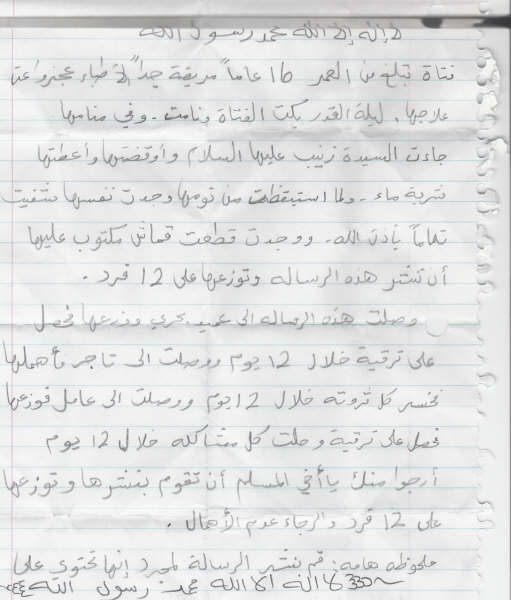 لا إله إلا الله محمد رسول الله
فتاة تبلغ من العمر 16 عاماً مريضة جداً الأطباء عجزوا عن
علاجها. ليلة القدر بكت الفتاة ونامت - وفي منامها
جاءت السيدة زينب عليها السلام وأوقضتها وأعطتها
شربة ماء - ولما استيقظت من نومها وجدت نفسها شفيت
تماماً بأذن الله - ووجدت قطعت قماش مكتوب عليها
أن تنشر هذه الرساله وتوزعها على 12 فرد .
وصلت هذه الرساله الى عميد بحري وزرعها فحصل
على ترقية خلال 12 يوم ووصلت الى تاجر فأهملها
فخسر كل ثروته خلال 12 يوم ووصلت الى عامل فوزعها
فحصل على ترقية وحلت كل مشاكله خلال 12 يوم
أرجوا منك ياأخي المسلم أن تقوم بنشرها وتوزعها
على 12 فرد والرجاء عدم الأهمال .
ملحوظه هامه: قم بنشر الرسالة لمجرد إنها تحتوى على
لا اله الا الله محمد رسول الله